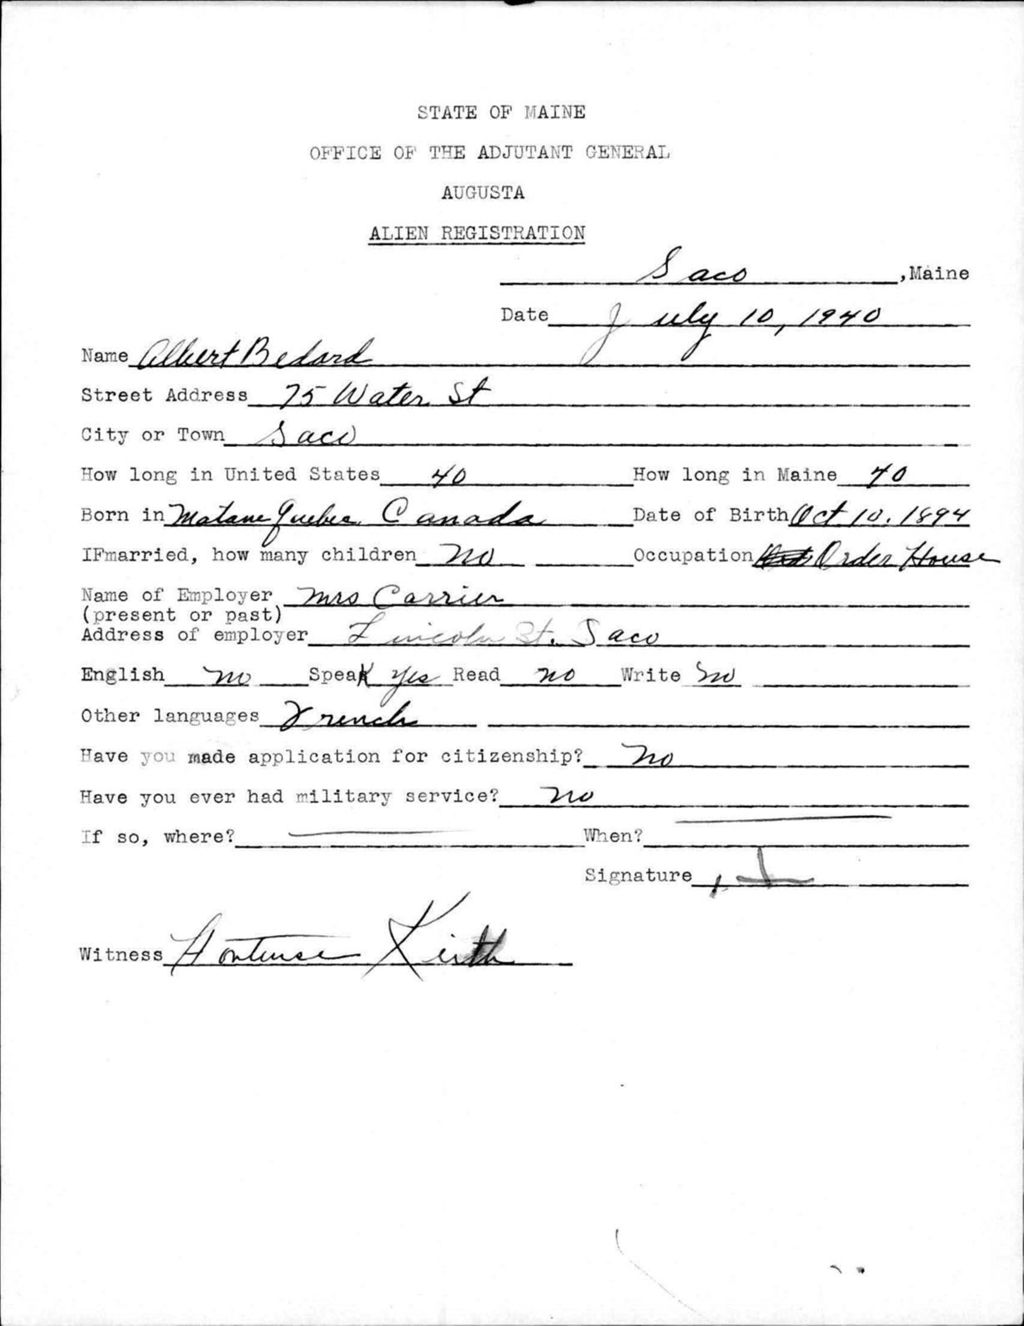 STATE OF MAINE
OFFICE OF THE ADJUTANT GENERAL
AUGUSTA
ALIEN REGISTRATION
Saco, Maine
Date July 10, 1940
Name Albert Bedard
Street Address 75 Water St
City or Town Saco
How long in United States 40 How long in Maine 40
Born in Matane Quebec, Canada Date of Birth Oct 10, 1894
IFmarried, how many children no Occupation Order House
Name of Employer Mrs Carrier
(present or past)
Address of employer Lincoln St. Saco
English no Speak yes Read no Write no
Other languages French
Have you made application for citizenship? no
Have you ever had military service? no
If so, where? When?
Signature
Witness Hortense Keith